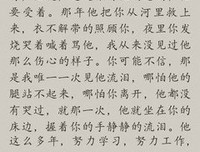 要受着。那年他把你从河里救上
来，衣不解带的照顾你，夜里你发
烧哭着喊着骂他，我从来没见过他
那么伤心的样子。你可能不信，那
是我唯一一次见他流泪，哪怕他的
腿站不起来，哪怕你离开，他都没
有哭过，就那一次，他就坐在你的
床边，握着你的手静静的流泪。他
这么多年，努力学习，努力工作，